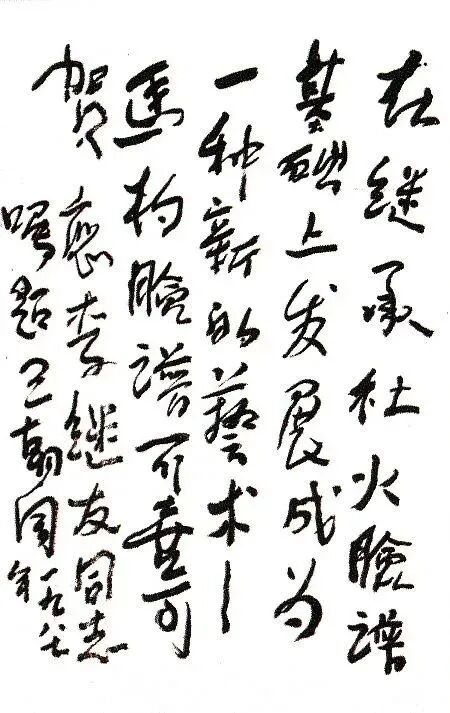 在继承社火臉谱
基础上发展成为
一种新的藝术—
馬杓臉谱可喜可
贺
应李继友同志
嘱题王朝闻一九八七年